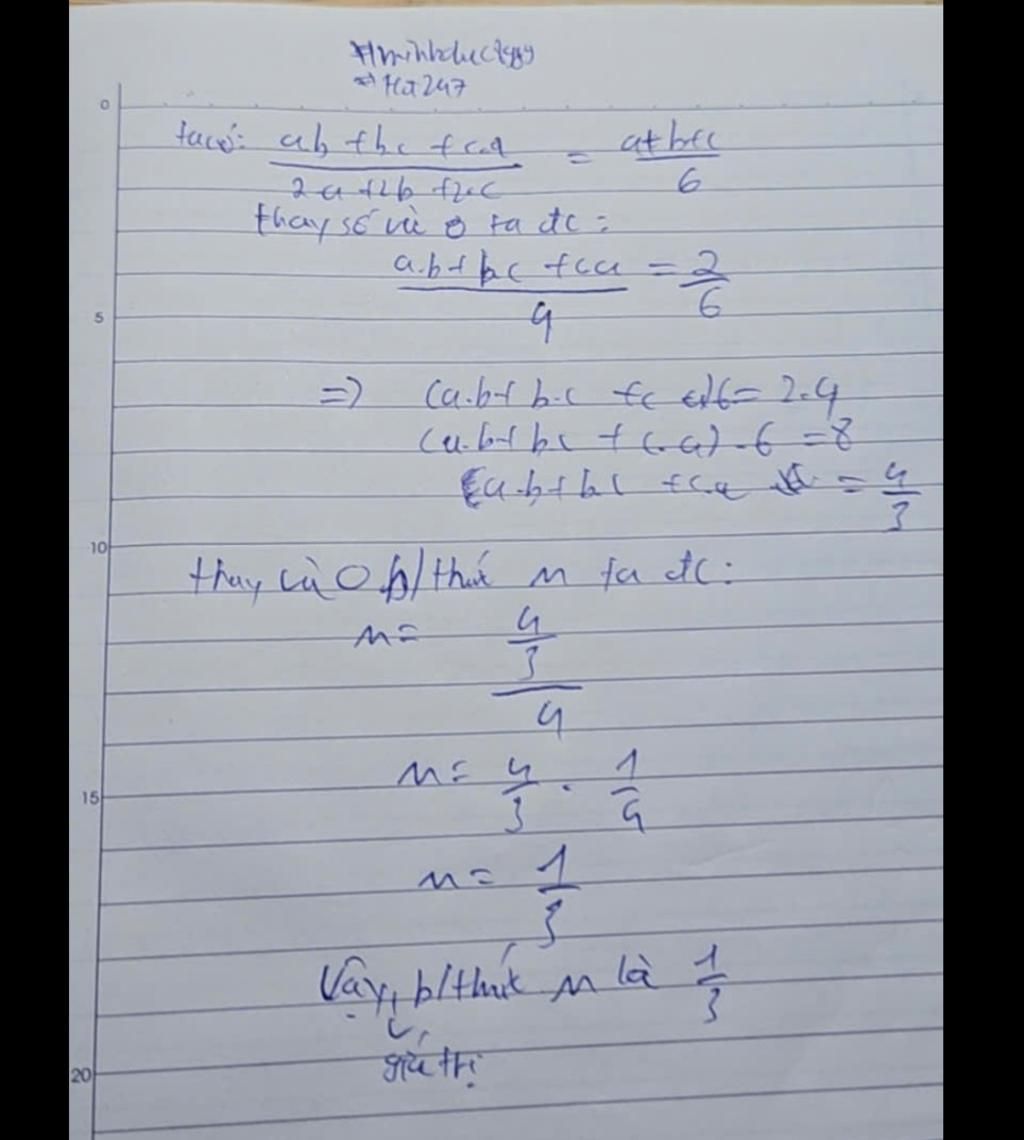 #minhduc7ggg
=> Hd247
0
ta có: ab + bc + c.a / 2a + 2b + 2.c = a + b + c / 6
thay số vào ta đc:
a.b + bc + ca / 4 = 2 / 6
5
=> (a.b + b.c + c.a)6 = 2.4
(a.b + bc + c.a) . 6 = 8
a.b + bc + c.a = 4/3
10
thay vào b/thức M ta đc:
M = 4/3 / 4
M = 4/3 . 1/4
15
M = 1/3
Vậy, b/thức M là 1/3
giá trị
20